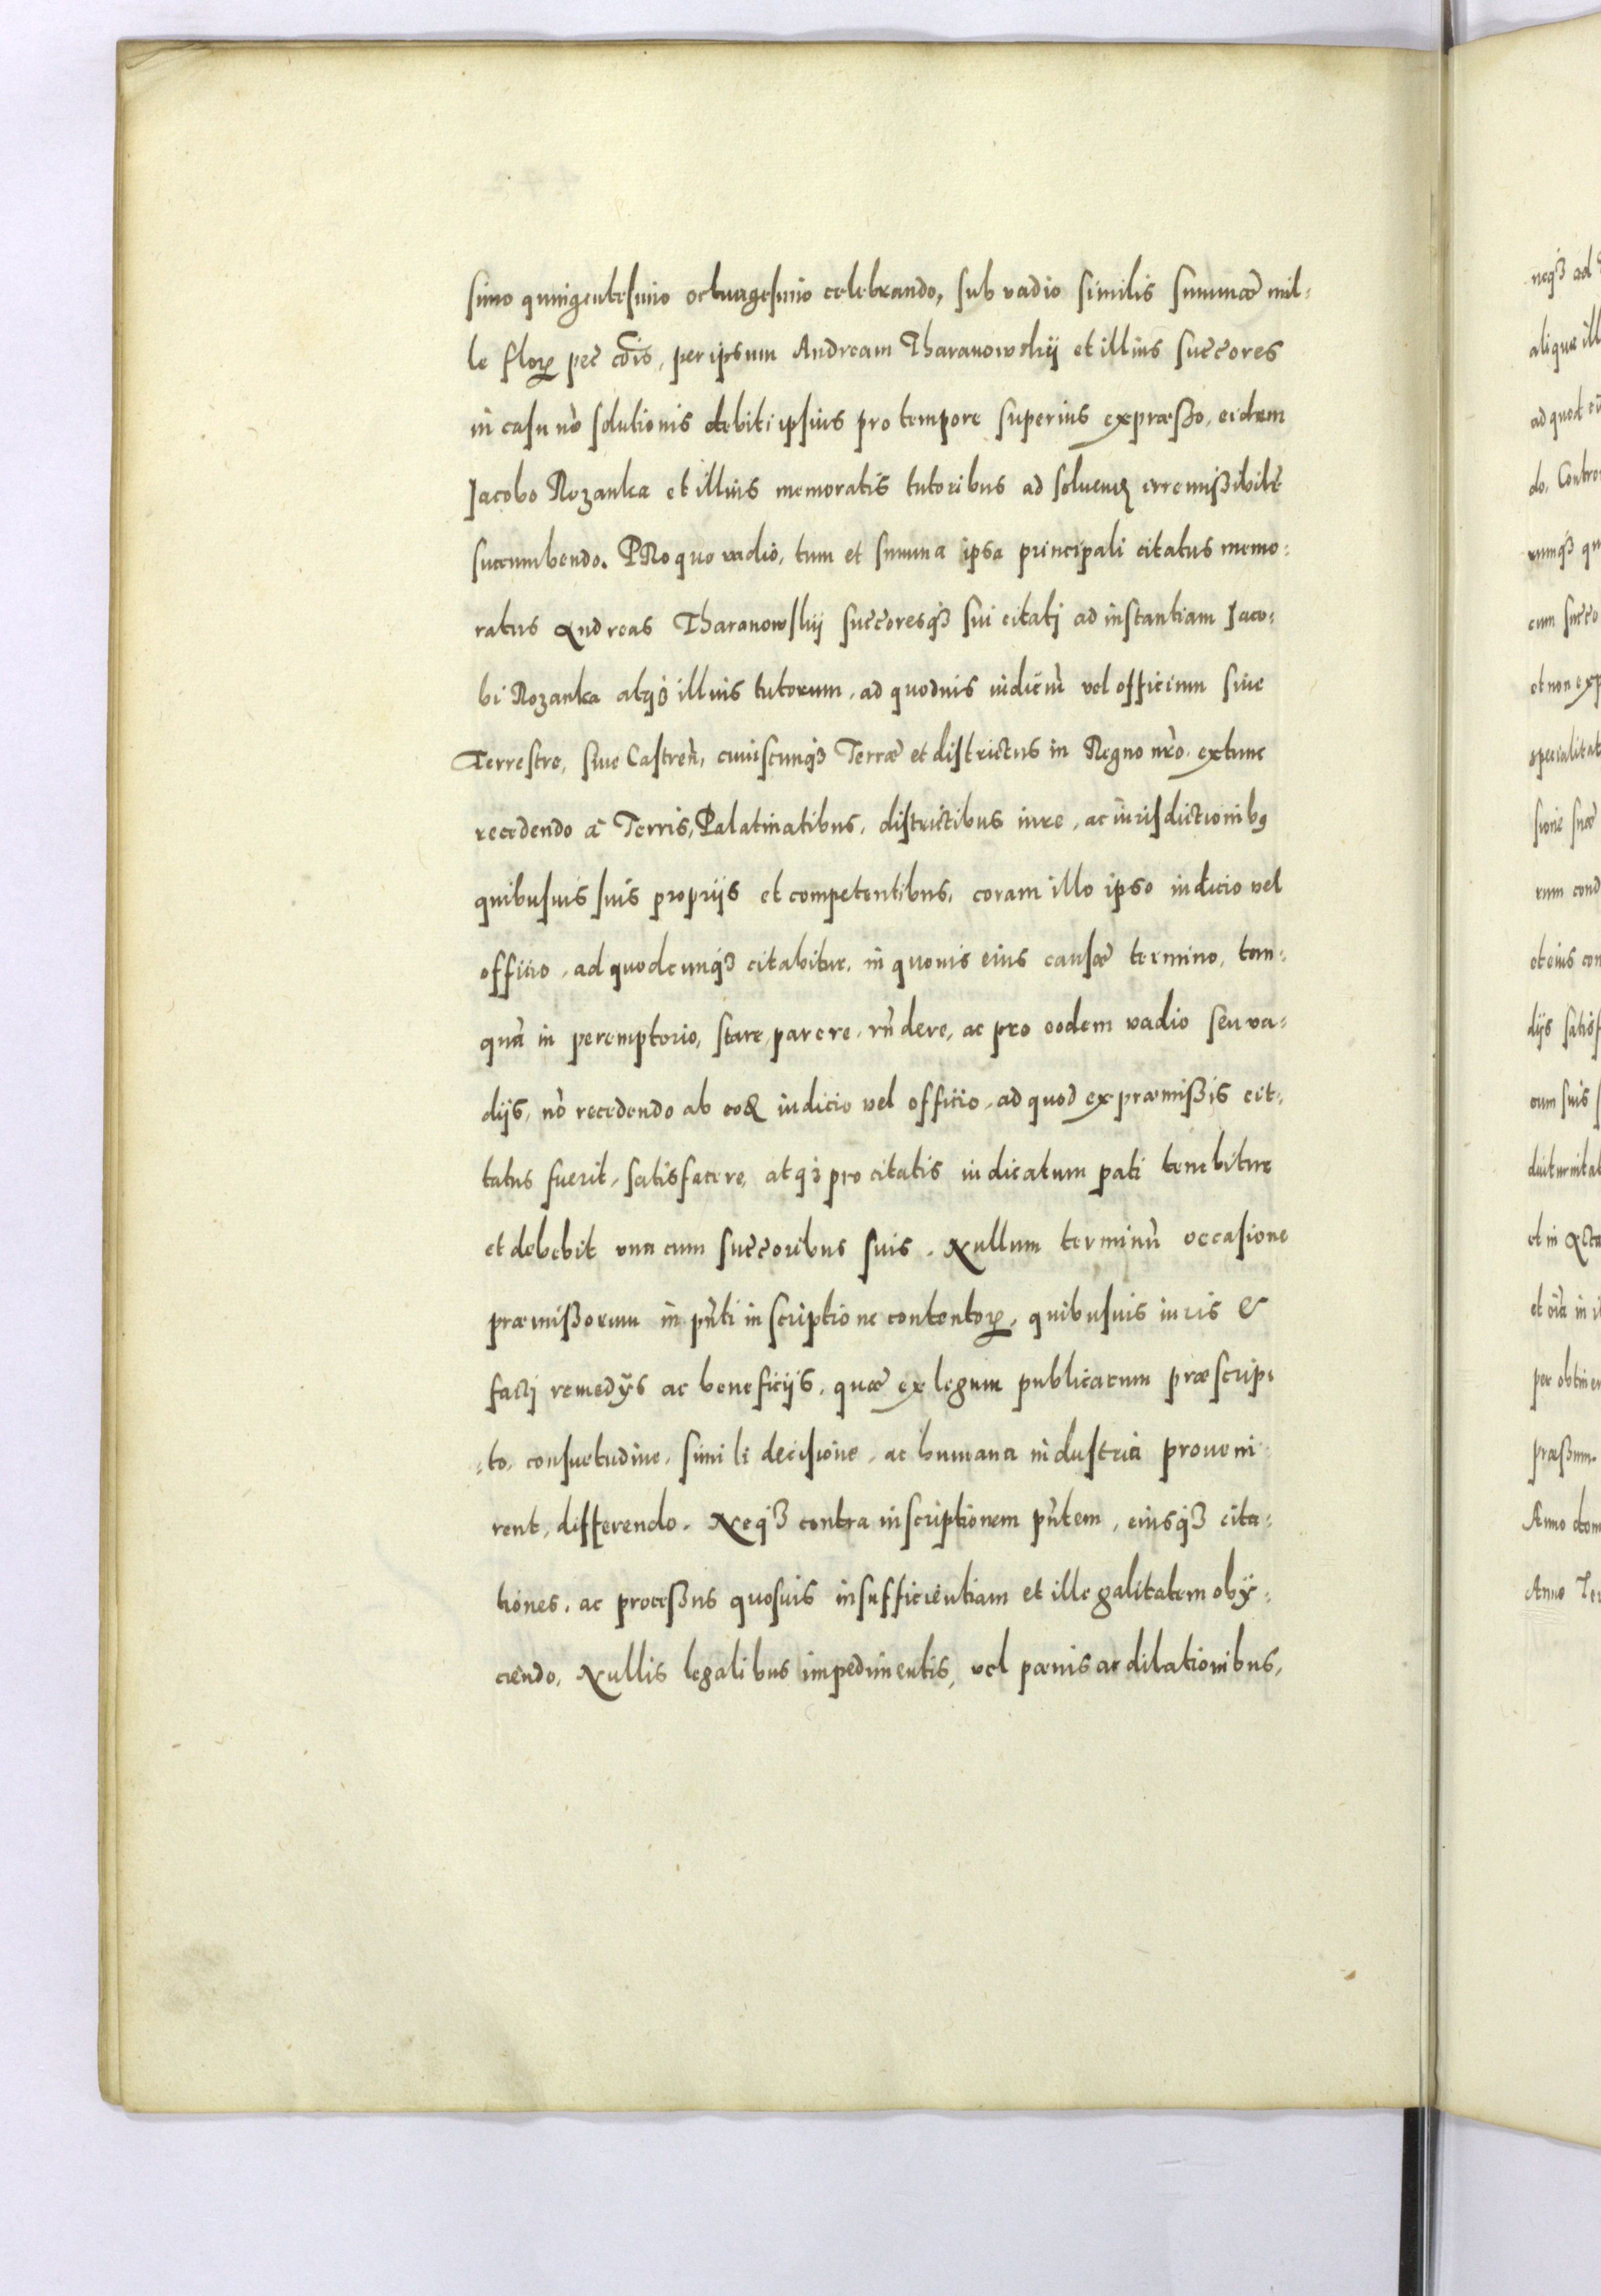 simo quingentesimo octuagesimo celebrando, sub vadio similis summæ mil-
le floꝝ pec̃ cõis, per ipsum Andream Tharanowskij et illius suc̃cores
in casu nõ solutionis debiti ipsius pro tempore superius expræßo, eidem
Jacobo Rozanka et illius memoratis tutoribus ad soluenđ irremißibilr̃
succumbendo. PRo quo vadio, tum et summa ipsa principali citatus memo-
ratus Andreas Tharanowskij suc̃coresqꝫ sui citatj ad instantiam Jaco-
bi Rozanka atqꝫ illius tutorum, ad quoduis iudiciũ vel officium siue
Terrestre, siue Castreñ, cuiuscunqꝫ Terræ et districtus in Regno nr̃o. extunc
recedendo à Terris, Palatinatibus, districtibus iure, ac iurisdictionibꝰ
quibusuis suis proprijs et competentibus, coram illo ipso iudicio vel
officio, ad quodcunqꝫ citabitur. in quouis eius causæ termino, tan-
quã in peremptorio, stare, parere, rñdere, ac pro eodem vadio seu va-
dijs, nõ recedendo ab eođ iudicio vel officio, ad quod ex præmißis cit-
tatus fuerit, satisfacere, atqꝫ pro citatis iudicatum pati tenebitur
et debebit vna cum suc̃coribus suis. Nullum terminũ occasione
præmißorum in pñti inscriptione contentoꝝ, quibusuis iuris &
factj remedijs ac beneficijs, quæ ex legum publicarum præscrip-
-to, consuetudine, simili decisione, ac humana industria proueni-
rent, differendo. Neqꝫ contra inscriptionem pñtem, eiusqꝫ cita-
tiones, ac proceßus quosuis insufficientiam et illegalitatem obij-
ciendo, Nullis legalibus impedimentis, vel pænis ac dilationibus,